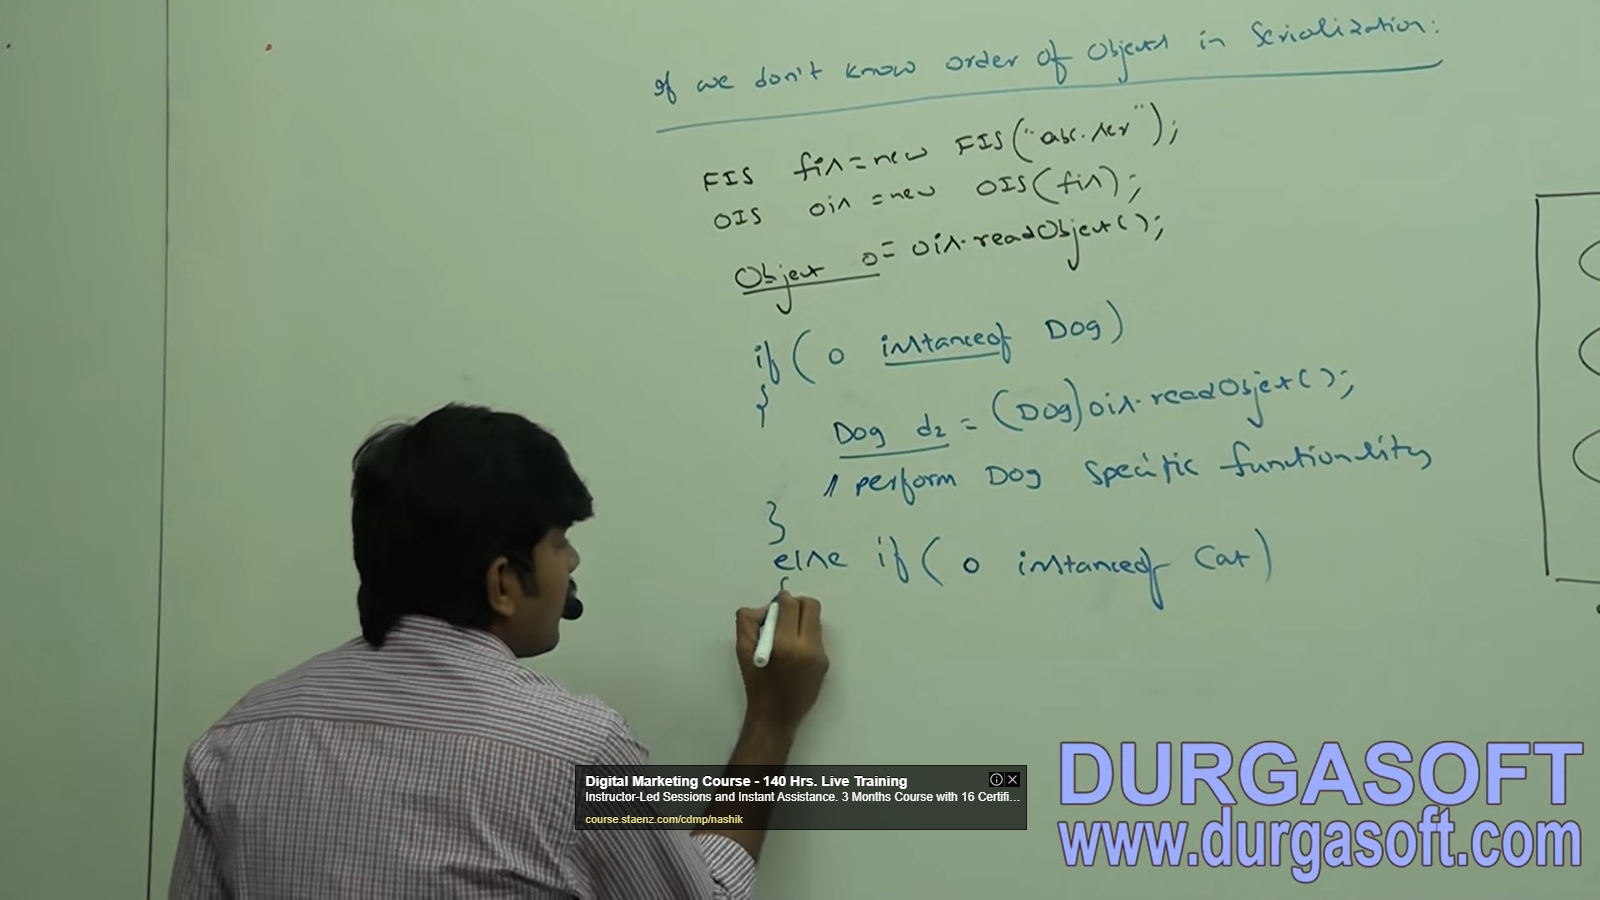 If we don't know order of Objects in Serialization:
FIS fis=new FIS("abc.ser");
OIS ois=new OIS(fis);
Object o=ois.readObject();
if(o instanceof Dog)
{
Dog d2=(Dog)ois.readObject();
// perform Dog specific functionality
}
else if(o instanceof Cat)
{
Digital Marketing Course - 140 Hrs. Live Training
Instructor-Led Sessions and Instant Assistance. 3 Months Course with 16 Certifi...
course.staenz.com/cdmp/nashik
DURGASOFT
www.durgasoft.com